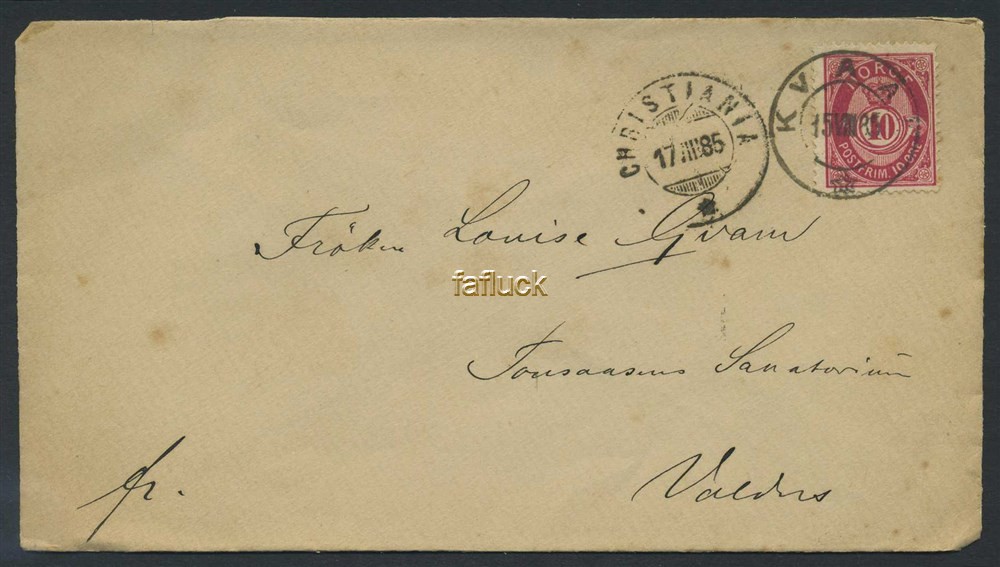 CHRISTIANIA
17 III 85
KVAA
15 VIII 85
NORGE
10
POSTFRIM. 10 ØRE
Fröken Louise Gvam
fafluck
Tonsaasens Sanatorium
fr.
Valders